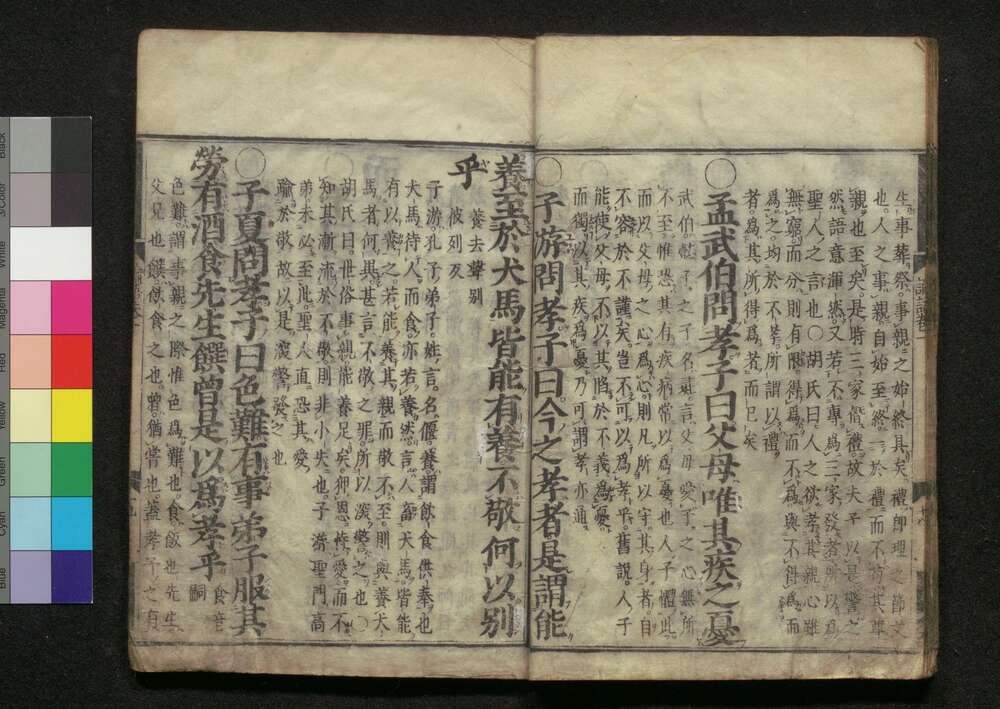 生事葬祭事親之始終具矣禮即理之節文
也人之事親自始至終一於禮而不苟其尊
親也至矣是時三家僭禮故夫子以是警之
然語意渾然又若不專爲三家發者所以爲
聖人之言也○胡氏曰人之欲孝其親心雖
無窮而分則有限得爲而不爲與不得爲而
爲之均於不孝所謂以禮
者爲其所得爲者而已矣
○孟武伯問孝子曰父母唯其疾之憂
武伯懿子之子名彘言父母愛子之心無所
不至惟恐其有疾病常以爲憂也人子體此
而以父母之心爲心則凡所以守其身者自
不容於不謹矣豈不可以爲孝乎舊說人子
能使父母不以其陷於不義爲憂
而獨以其疾爲憂乃可謂孝亦通
○子游問孝子曰今之孝者是謂能
養至於犬馬皆能有養不敬何以別
乎
養去聲別
彼列反
子游孔子弟子姓言名偃養謂飲食供奉也
犬馬待人而食亦若養然言人畜犬馬皆能
有以養之若能養其親而敬不至則與養犬
馬者何異甚言不敬之罪所以深警之也
胡氏曰世俗事親能養足矣狎恩恃愛而不
知其漸流於不敬則非小失也子游聖門高
弟未必至此聖人直恐其愛
踰於敬故以是深警發之也
○子夏問孝子曰色難有事弟子服其
勞有酒食先生饌曾是以爲孝乎
食音
嗣
色難謂事親之際惟色爲難也食飯也先生
父兄也饌飲食之也曾猶嘗也蓋孝子之有